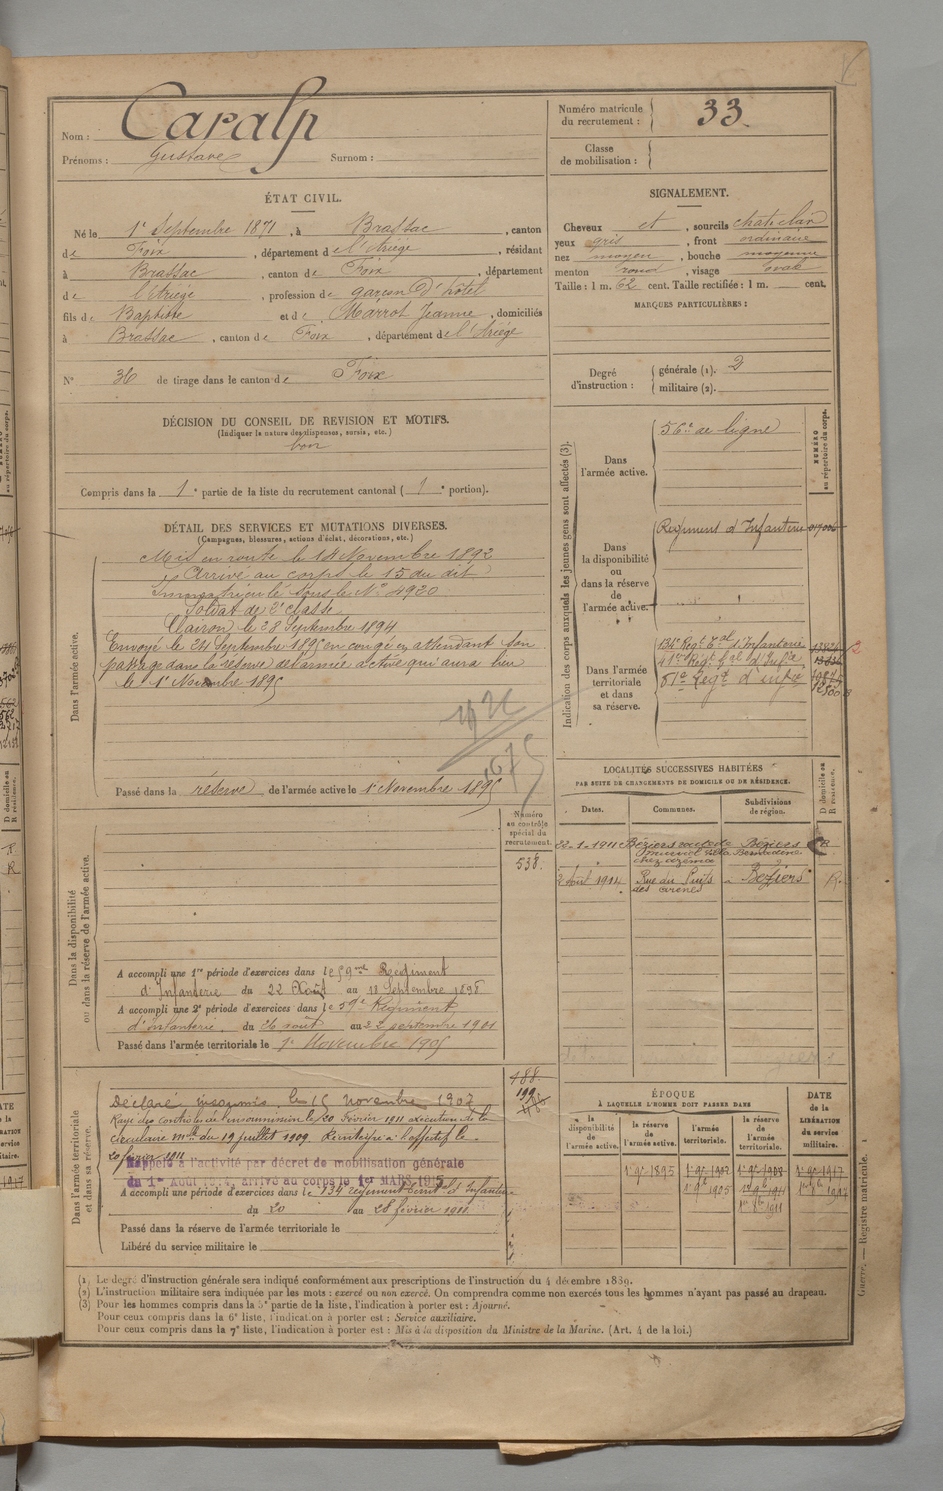 Nom : Caralp
Prénoms : Gustave Surnom :
Numéro matricule du recrutement : 33
Classe de mobilisation :
ÉTAT CIVIL.
Né le 1er Septembre 1871, à Brassac, canton
de Foix, département de l'Ariège, résidant
à Brassac, canton de Foix, département
de l'Ariège, profession de garçon d'hôtel
fils de Baptiste et de Marrot Jeanne, domiciliés
à Brassac, canton de Foix, département de l'Ariège
N° 36 de tirage dans le canton de Foix
SIGNALEMENT.
Cheveux et, sourcils chat. clair
yeux gris, front ordinaire
nez moyen, bouche moyenne
menton rond, visage ovale
Taille : 1 m. 62 cent. Taille rectifiée : 1 m. cent.
MARQUES PARTICULIÈRES :
Degré d'instruction : générale (1). 2
militaire (2).
DÉCISION DU CONSEIL DE REVISION ET MOTIFS.
(Indiquer la nature des dispenses, sursis, etc.)
bon
Compris dans la 1e partie de la liste du recrutement cantonal (1e portion).
DÉTAIL DES SERVICES ET MUTATIONS DIVERSES.
(Campagnes, blessures, actions d'éclat, décorations, etc.)
Dans l'armée active.
Mis en route le 14 Novembre 1892
Arrivé au corps le 15 du dit
Immatriculé sous le N° 4920
Soldat de 2e classe
Clairon le 28 Septembre 1894
Envoyé le 24 Septembre 1895 en congé en attendant son
passage dans la réserve de l'armée active qui aura lieu
le 1er Novembre 1895
Passé dans la réserve de l'armée active le 1er Novembre 1895
Indication des corps auxquels les jeunes gens sont affectés (3).
NUMÉRO au répertoire du corps.
Dans l'armée active.
56e de ligne
Dans la disponibilité ou dans la réserve de l'armée active.
Regiment d'Infanterie
Dans l'armée territoriale et dans sa réserve.
134e Regt tal d'Infanterie
81e Regt d'infie
LOCALITÉS SUCCESSIVES HABITÉES
PAR SUITE DE CHANGEMENTS DE DOMICILE OU DE RÉSIDENCE.
Dates. Communes. Subdivisions de région. D domicile ou R résidence.
22-1-1911 Béziers Béziers R
2 Août 1914 Rue du Puits des arènes Béziers R.
Dans la disponibilité ou dans la réserve de l'armée active.
Numéro au contrôle spécial du recrutement.
538.
A accompli une 1re période d'exercices dans le 59me Régiment
d'Infanterie du 22 Août au 18 Septembre 1898
A accompli une 2e période d'exercices dans le 59e Régiment
d'infanterie, du 26 août au 22 septembre 1901
Passé dans l'armée territoriale le 1er Novembre 1905
Dans l'armée territoriale et dans sa réserve.
Déclaré insoumis, le 15 novembre 1907
Rayé des contrôles de l'insoumission le 20 Février 1911 exécution de la
circulaire mlle du 19 juillet 1909. Réintégré à l'effectif le
20 février 1911
Rappelé à l'activité par décret de mobilisation générale
du 1er Août 1914, arrivé au corps le 1er MARS 1915
A accompli une période d'exercices dans le 134 régiment territ. d'Infanterie
du 20 au 28 février 1911
Passé dans la réserve de l'armée territoriale le
Libéré du service militaire le
ÉPOQUE
À LAQUELLE L'HOMME DOIT PASSER DANS
la disponibilité de l'armée active. la réserve de l'armée active. l'armée territoriale. la réserve de l'armée territoriale.
DATE de la LIBÉRATION du service militaire.
1er 9e 1895
1er 9e 1905
(1) Le degré d'instruction générale sera indiqué conformément aux prescriptions de l'instruction du 4 décembre 1889.
(2) L'instruction militaire sera indiquée par les mots : exercé ou non exercé. On comprendra comme non exercés tous les hommes n'ayant pas passé au drapeau.
(3) Pour les hommes compris dans la 5e partie de la liste, l'indication à porter est : Ajourné.
Pour ceux compris dans la 6e liste, l'indication à porter est : Service auxiliaire.
Pour ceux compris dans la 7e liste, l'indication à porter est : Mis à la disposition du Ministre de la Marine. (Art. 4 de la loi.)
Guerre. — Registre matricule. 1